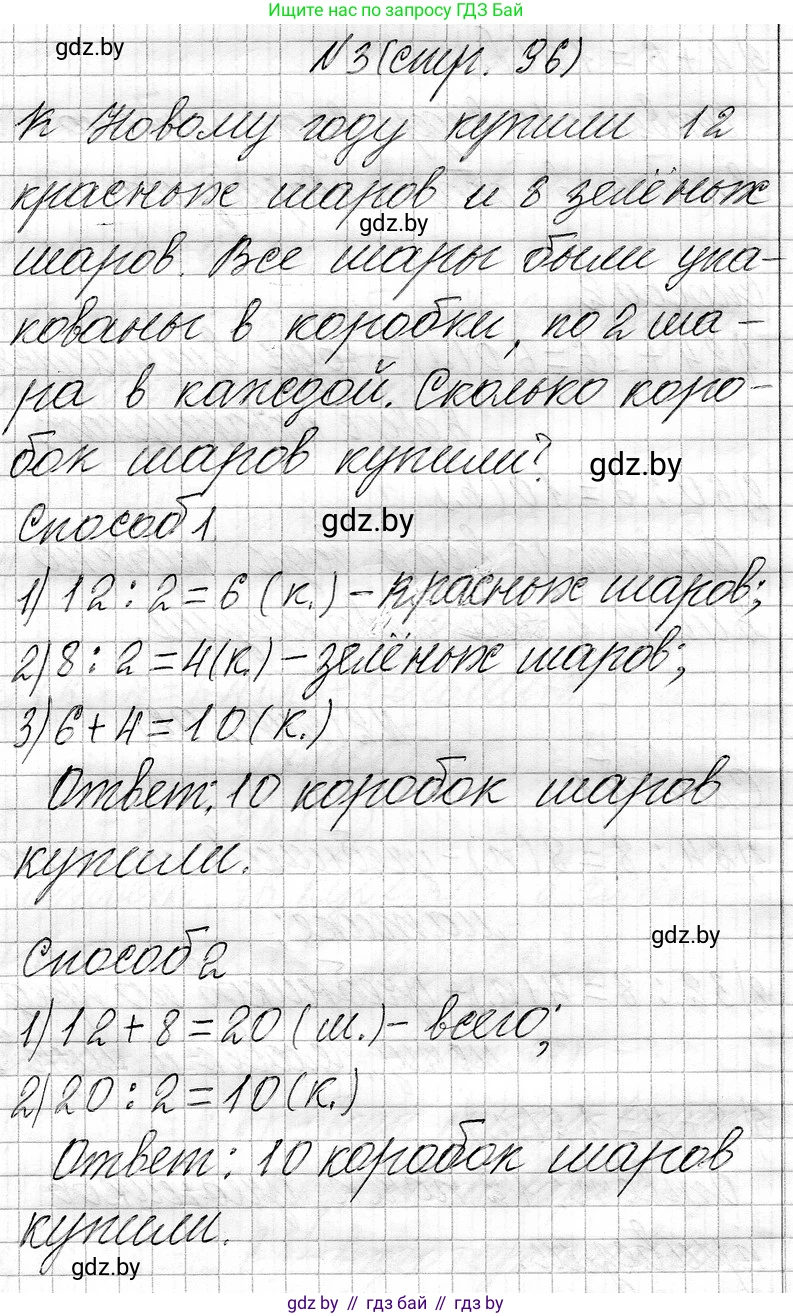 Ищите нас по запросу ГДЗ Бай
gdz.by
№3 (стр. 96)
К Новому году купили 12
красных шаров и 8 зелёных
gdz.by
шаров. Все шары были упа-
кованы в коробки, по 2 ша-
ра в каждой. Сколько коро-
бок шаров купили?
gdz.by
Способ 1
gdz.by
1) 12 : 2 = 6 (к.) – красных шаров;
2) 8 : 2 = 4 (к.) – зелёных шаров;
3) 6 + 4 = 10 (к.)
Ответ: 10 коробок шаров
купили.
gdz.by
Способ 2
1) 12 + 8 = 20 (ш.) – всего;
2) 20 : 2 = 10 (к.)
Ответ: 10 коробок шаров
купили.
gdz.by
gdz.by // гдз бай // gdz.by